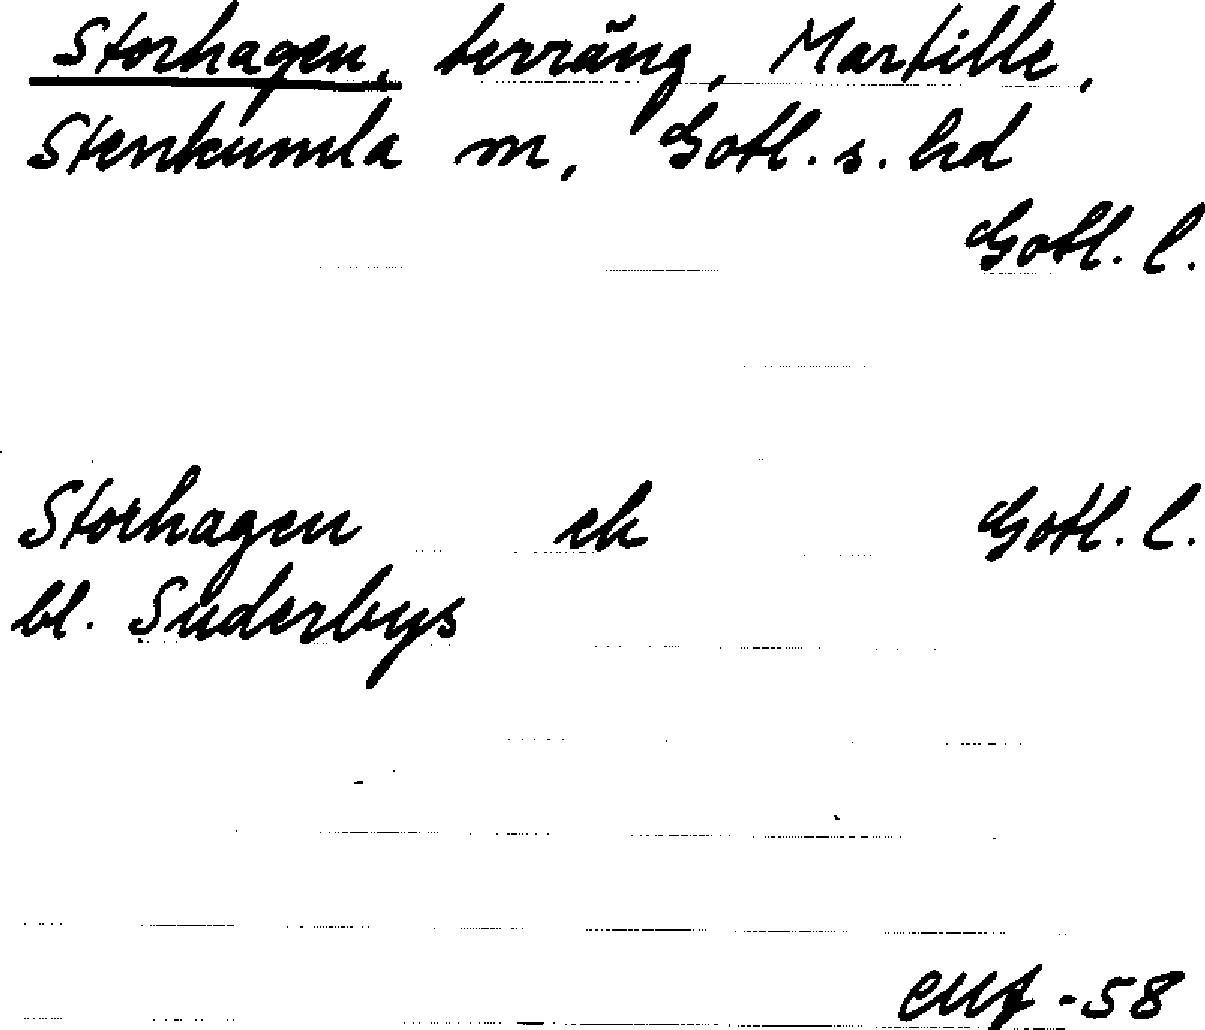 Storhagen, terräng, Martille,
Stenkumla sn, Gotl. s. hd
Gotl. l.
Storhagen ek Gotl. l.
bl. Suderbys
-58